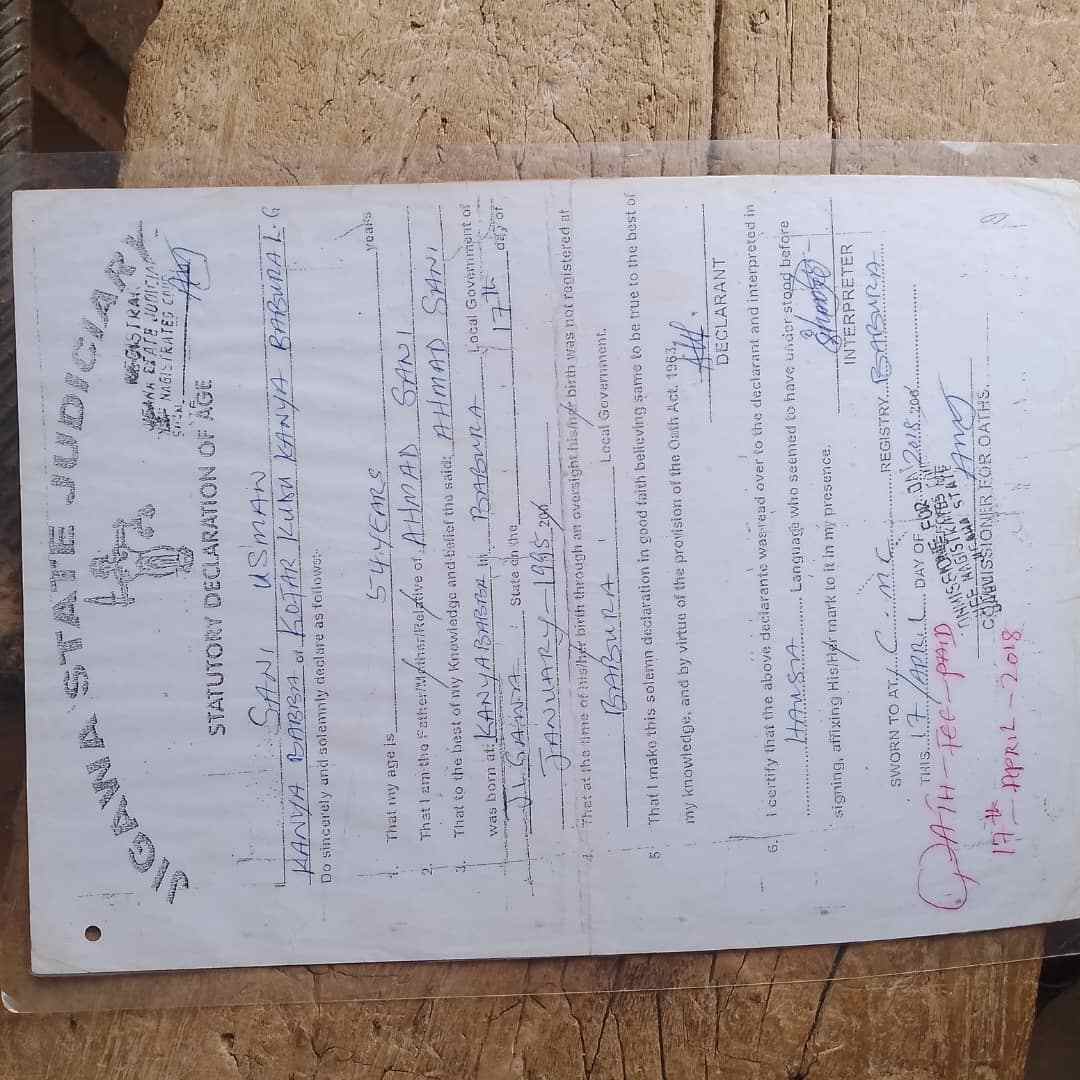 JIGAWA STATE JUDICIARY
REGISTRAR
JIGAWA STATE JUDICIARY
STATUTORY DECLARATION OF AGE
I SANI USMAN
KANYA BABBA of KOFAR KUDU KANYA BABURA L.G
Do sincerely and solemnly declare as follows:-
1. That my age is 54 YEARS years
2. That I am the Father/Mother/Relative of AHMAD SANI
3. That to the best of my Knowledge and belief the said: AHMAD SANI
was born at: KANYA BABBA in BABURA Local Government of
JIGAWA State on the 17th day of
JANUARY - 1995 200
4. That at the time of his/her birth through an oversight his/her birth was not registered at
BABURA Local Government.
5. That I make this solemn declaration in good faith believing same to be true to the best of
my knowledge, and by virtue of the provision of the Oath Act. 1963.
DECLARANT
6. I certify that the above declarante was read over to the declarant and interpreted in
HAUSA Language who seemed to have under stood before
signing, affixing His/Her mark to it in my presence.
INTERPRETER
SWORN TO AT C.M.C REGISTRY BABURA
THIS 17 APRIL DAY OF 2018 200
COMMISSIONER FOR OATHS.
OATH - FEE - PAID
17th - APRIL - 2018